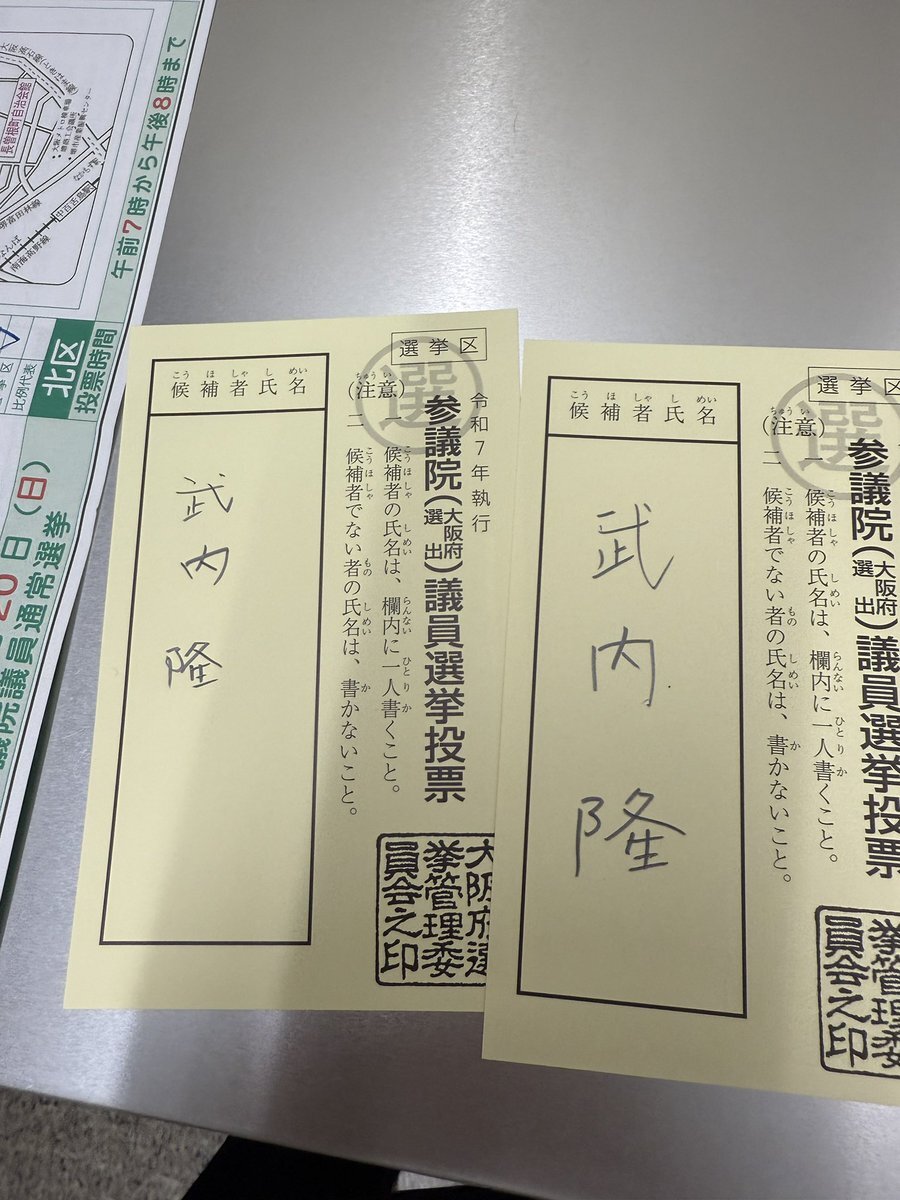 午前7時から午後8時まで
北区
投票時間
比例代表
長曽根町自治会館
中百舌鳥駅
南海高野線
20日(日)
議院議員通常選挙
選挙区
選
令和7年執行
参議院(大阪府選出)議員選挙投票
(注意)
一 候補者の氏名は、欄内に一人書くこと。
二 候補者でない者の氏名は、書かないこと。
候補者氏名
武内隆
大阪府選
挙管理委
員会之印
選挙区
選
参議院(大阪府選出)議員選挙投票
(注意)
一 候補者の氏名は、欄内に一人書くこと。
二 候補者でない者の氏名は、書かないこと。
候補者氏名
武内隆
挙管理委
員会之印